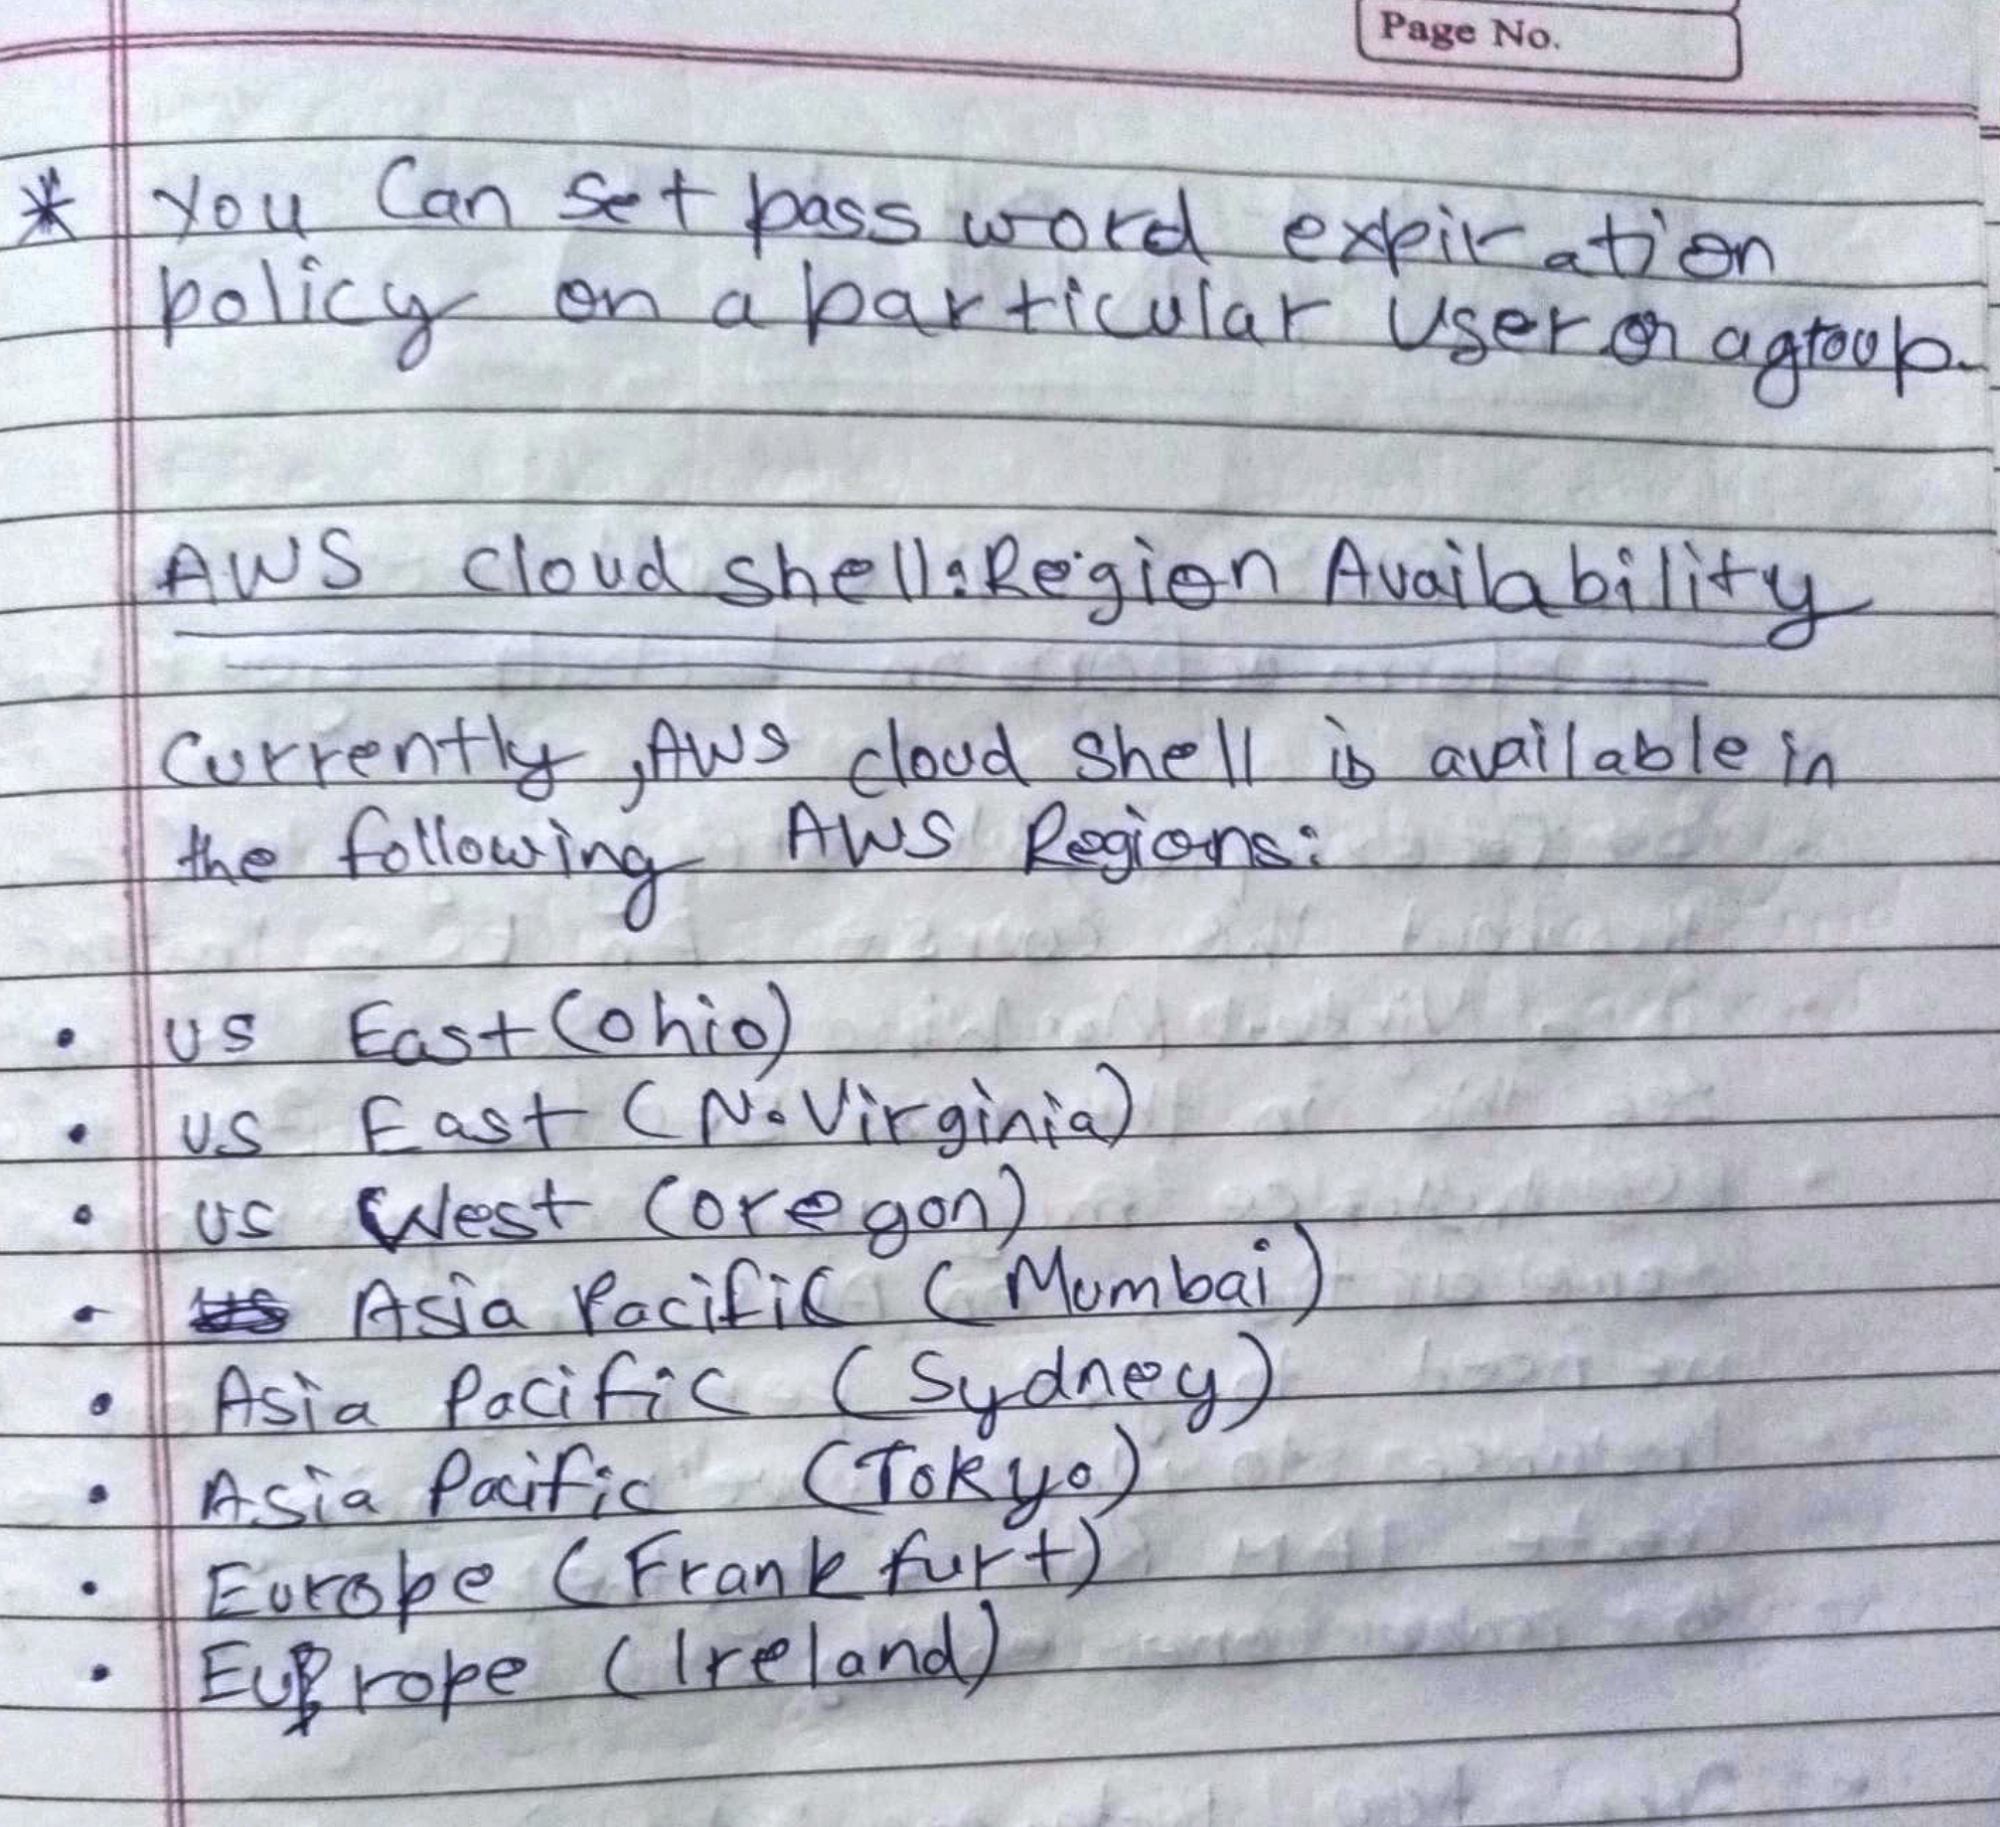 Page No.
* You Can set password expiration
policy on a particular user or a group.
AWS cloud shell: Region Availability
Currently, AWS cloud shell is available in
the following AWS Regions:
• US East (Ohio)
• US East (N. Virginia)
• US West (Oregon)
• Asia Pacific (Mumbai)
• Asia Pacific (Sydney)
• Asia Pacific (Tokyo)
• Europe (Frankfurt)
• Europe (Ireland)